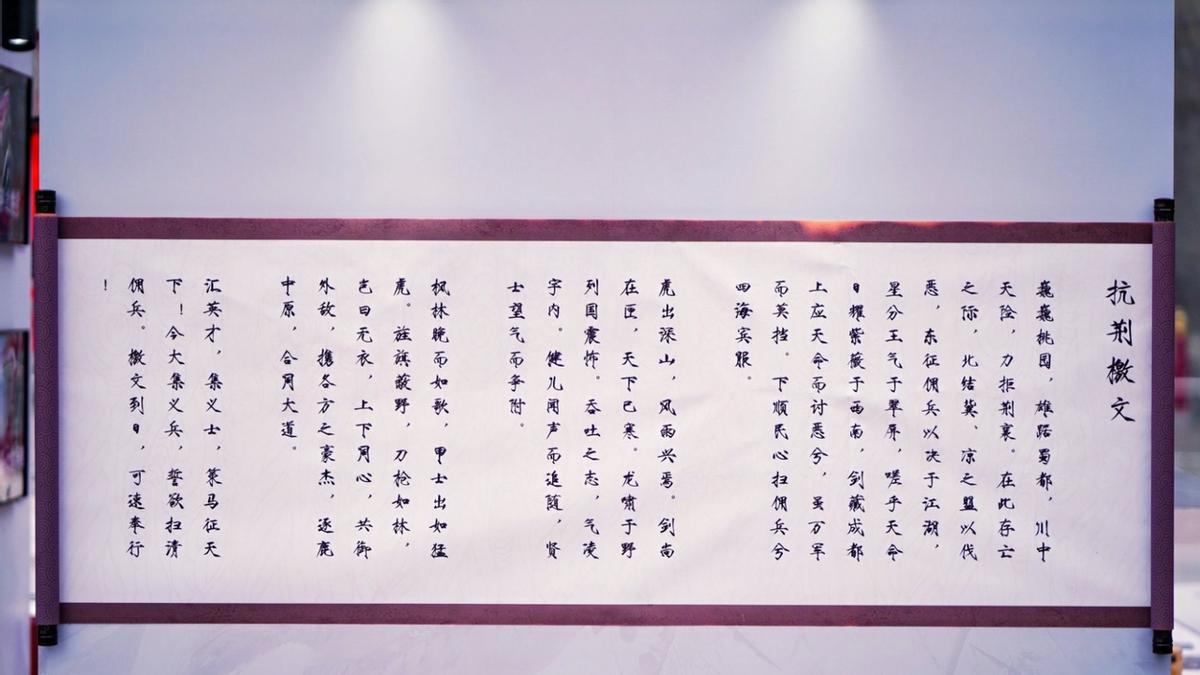 抗荆檄文
巍巍桃园，雄踞蜀都，川中
天险，力拒荆襄。在此存亡
之际，北结冀、凉之盟以伐
恶，东征佣兵以决于江湖，
星分王气于翠屏，嗟乎天命
日耀紫薇于西南，剑藏成都
上应天命而讨恶兮，虽万军
而莫挡。下顺民心扫佣兵兮
四海宾服。
虎出深山，风雨兴焉。剑尚
在匣，天下已寒。龙啸于野
列国震怖。吞吐之志，气凌
宇内。健儿闻声而追随，贤
士望气而争附。
枫林晚而如歌，甲士出如猛
虎。旌旗蔽野，刀枪如林，
岂曰无衣，上下同心，共御
外敌，携各方之豪杰，逐鹿
中原，合同大道。
汇英才，集义士，策马征天
下！今大集义兵，誓欲扫清
佣兵。檄文到日，可速奉行
！